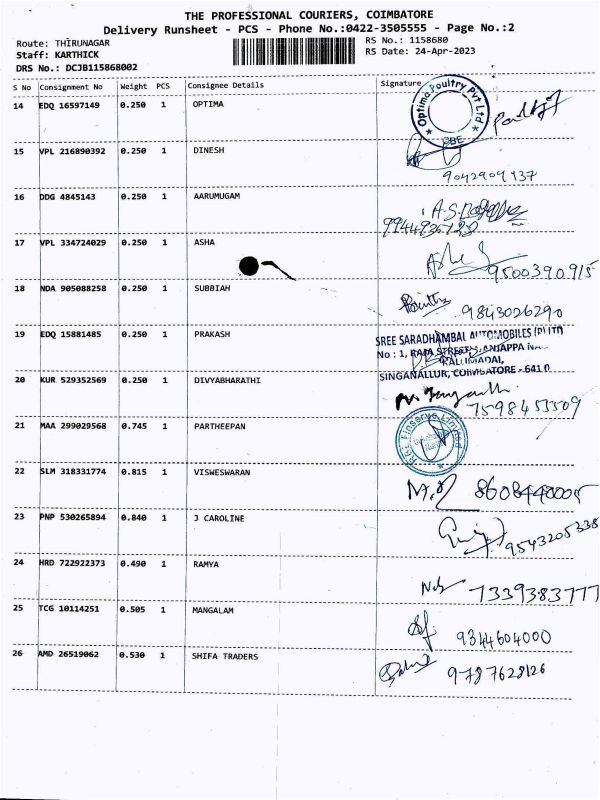 THE PROFESSIONAL COURIERS, COIMBATORE
Delivery Runsheet - PCS - Phone No.:0422-3505555 - Page No.:2
Route: THIRUNAGAR
RS No.: 1158680
Staff: KARTHICK
RS Date: 24-Apr-2023
DRS No.: DCJB115868002
S No Consignment No Weight PCS Consignee Details Signature
14 EDQ 16597149 0.250 1 OPTIMA
Optima Poultry Pvt Ltd
CBE
15 VPL 216890392 0.250 1 DINESH
9042909437
16 DDG 4845143 0.250 1 AARUMUGAM
17 VPL 334724029 0.250 1 ASHA
9500390915
18 NDA 905088258 0.250 1 SUBBIAH
9843026290
19 EDQ 15881485 0.250 1 PRAKASH
SREE SARADHAMBAL AUTOMOBILES (P) LTD
No : 1, RAJA STREET, ANJAPPA
SINGANALLUR, COIMBATORE - 641 0
20 KUR 529352569 0.250 1 DIVYABHARATHI
7598453509
21 MAA 299029568 0.745 1 PARTHEEPAN
Finserve Limited
22 SLM 318331774 0.815 1 VISWESWARAN
8608440005
23 PNP 530265894 0.840 1 J CAROLINE
9543205338
24 HRD 722922373 0.490 1 RAMYA
7339383777
25 TCG 10114251 0.505 1 MANGALAM
9344604000
26 AMD 26519062 0.530 1 SHIFA TRADERS
9787628126